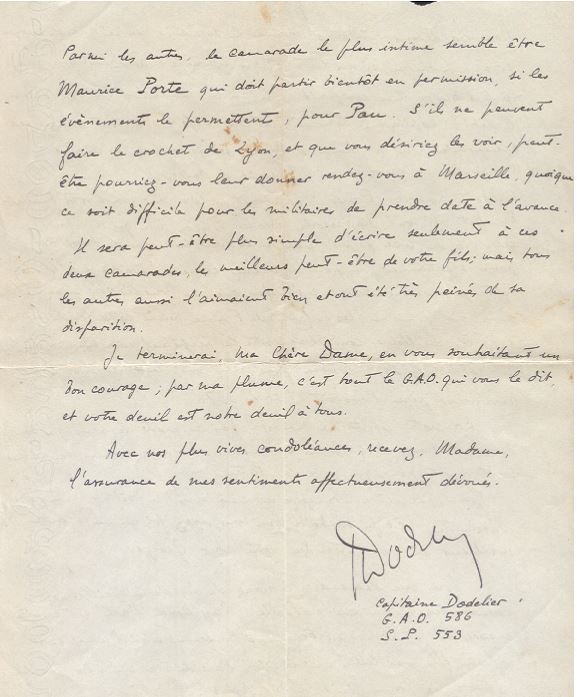 Parmi les autres, le camarade le plus intime semble être
Maurice Porte qui doit partir bientôt en permission, si les
évènements le permettent, pour Pau. S'ils ne peuvent
faire le crochet de Lyon, et que vous désiriez les voir, peut-
être pourriez-vous leur donner rendez-vous à Marseille, quoique
ce soit difficile pour les militaires de prendre date à l'avance.
Il sera peut-être plus simple d'écrire seulement à ces
deux camarades, les meilleurs peut-être de votre fils; mais tous
les autres aussi l'aimaient bien et ont été très peinés de sa
disparition.
Je terminerai, ma Chère Dame, en vous souhaitant un
bon courage; par ma plume, c'est tout le G.A.O. qui vous le dit,
et votre deuil est notre deuil à tous.
Avec nos plus vives condoléances, recevez, Madame,
l'assurance de mes sentiments affectueusement dévoués.
Capitaine Dodelier
G.A.O. 586
S.P. 553